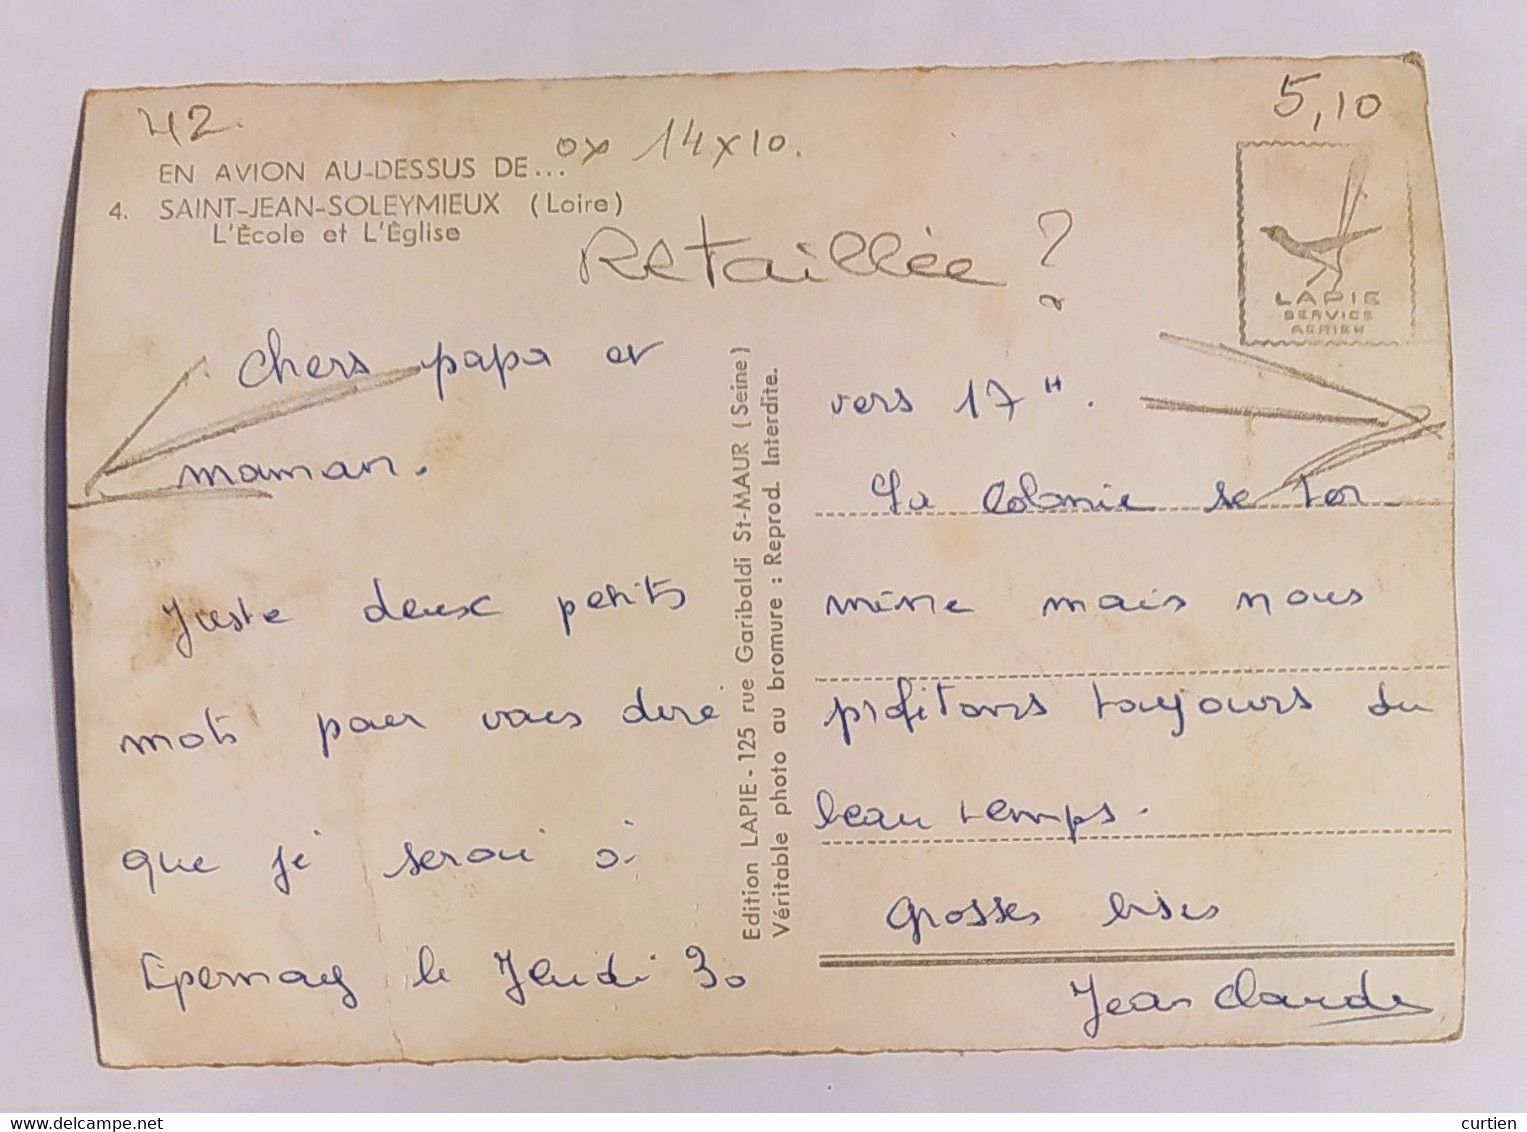 42.
5,10
EN AVION AU-DESSUS DE...
14x10.
4. SAINT-JEAN-SOLEYMIEUX (Loire)
L'École et L'Église
Retaillée ?
LAPIE
SERVICE
AERIEN
Chers papa et
maman.
Juste deux petits
mots pour vous dire
que je serai à
Epernay le Jeudi 30
Edition LAPIE - 125 rue Garibaldi St-MAUR (Seine)
Véritable photo au bromure : Reprod. Interdite.
vers 17 H.
La Colonie se ter
mine mais nous
profitons toujours du
beau temps.
Grosses bises
Jean Claude
www.delcampe.net
curtien